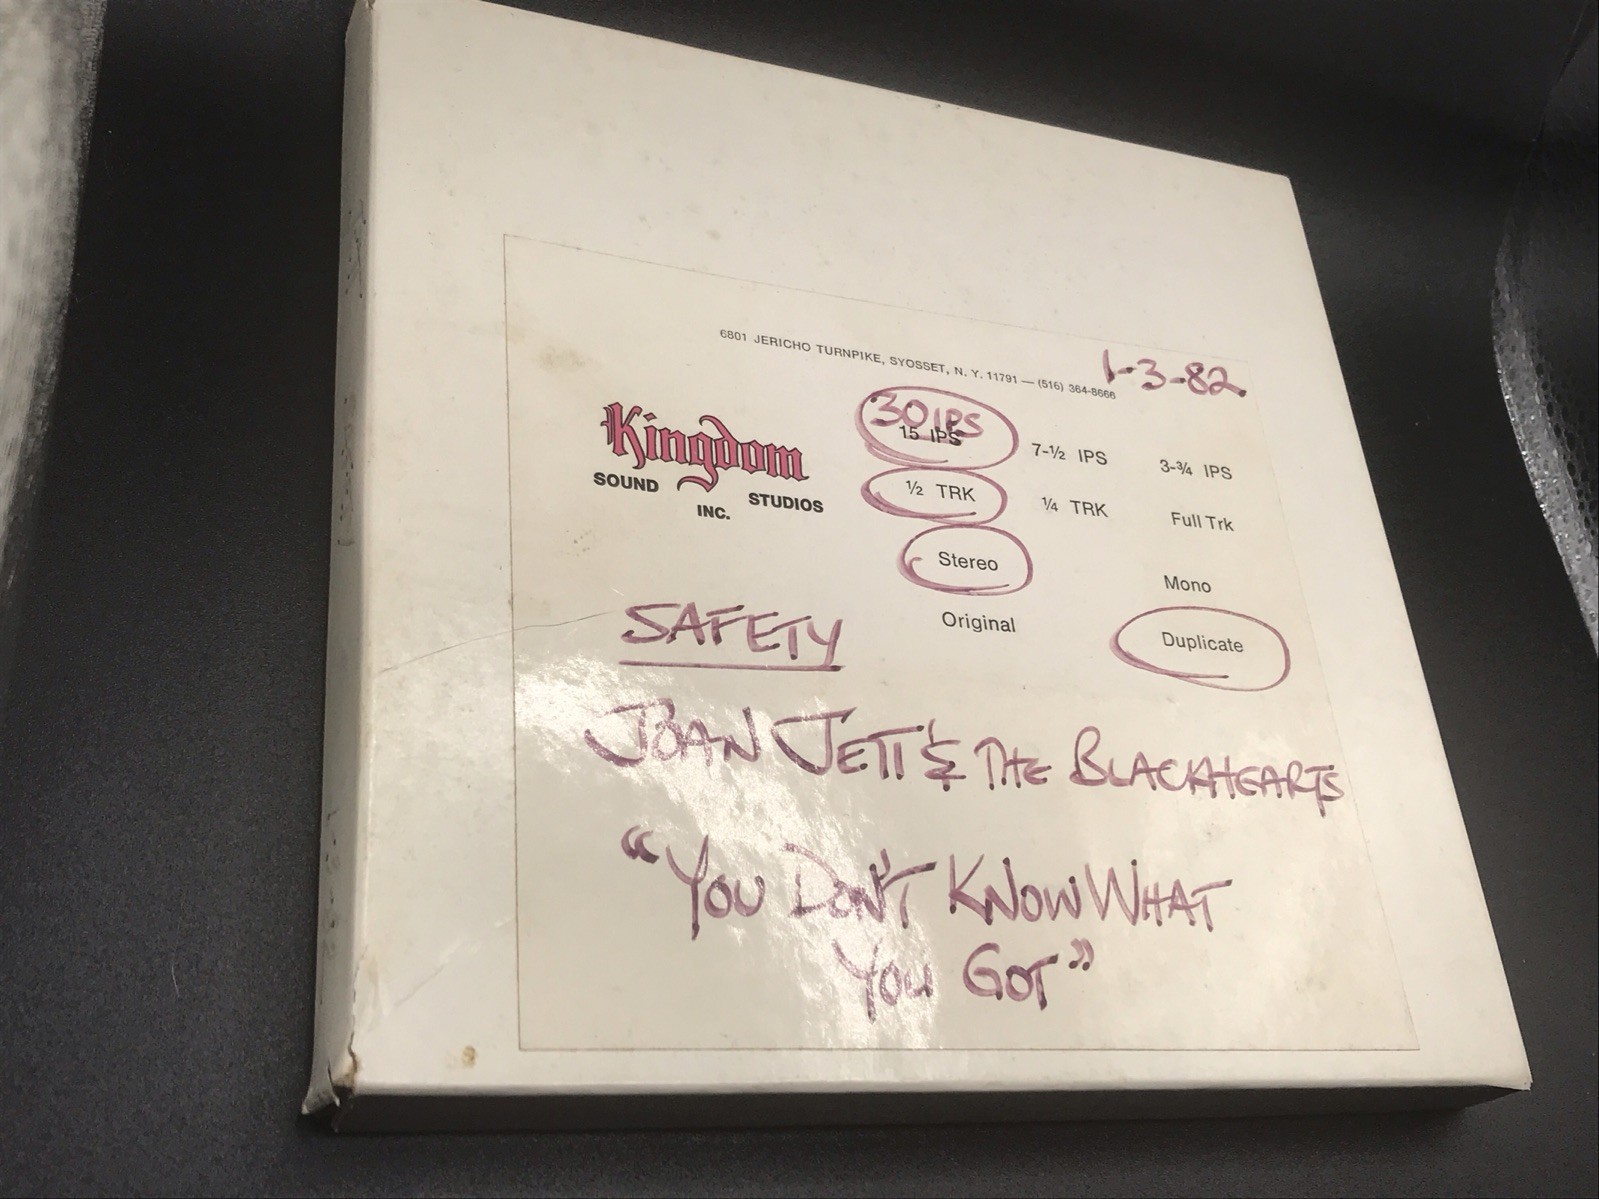 6801 JERICHO TURNPIKE, SYOSSET, N. Y. 11791 — (516) 364-8666
1-3-82
Kingdom
SOUND STUDIOS
INC.
30 IPS
15 IPS 7-½ IPS 3-¾ IPS
½ TRK ¼ TRK Full Trk
Stereo Mono
Original Duplicate
SAFETY
JOAN JETT & THE BLACKHEARTS
“YOU DON'T KNOW WHAT
YOU GOT”